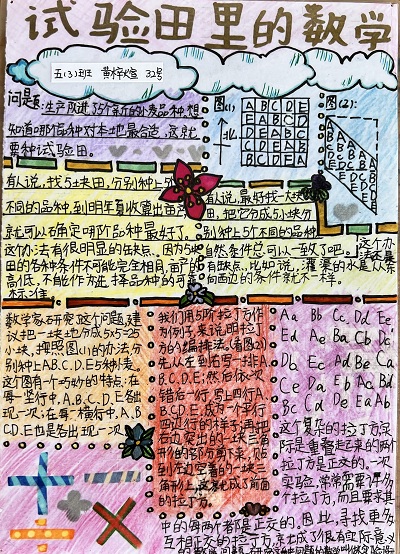 试验田里的数学
五(3)班 黄梓煊 32号
问题:生产队进了5个新的小麦品种,想
知道哪个品种对本地最合适,这就
要种试验田。
图(1):
北
A B C D E
E A B C D
D E A B C
C D E A B
B C D E A
图(2):
有人说,找5块田,分别种上
不同的品种,到明年夏收
就可以确定哪个品种最好了。
这个办法有很明显的缺点。因为5块
田的各种条件不可能完全相同,亩产的
高低,不能作为选择品种的可靠
标准。
有人说,最好找一大块
田,把它分成5小块,分
别种上5个不同的品种,
自然条件总可以一致了吧。
这个办法还是
有缺点。比如说,灌渠的水是从
南面边的条件就不一样。
数学家研究这个问题,建
议把一块地分成5×5=25
小块,按照图(1)的办法分
别种上A.B.C.D.E5种小麦。
这个图有个巧妙的特点:在
每一竖行中,A.B.C.D.E各出
现一次;在每一横行中,A.B
.C.D.E也是各出现一次
我们用5阶拉丁方作
为例子,来说明拉丁
方的编排法。(看图(2))
先从左到右写一排A
.B.C.D.E;然后依次
错后一行,写上四行A
.B.C.D.E,成为一个平行
四边行的样子;再把
右边突出的一块三角
形的部分剪下来,贴
到左边空着的一块三
角形上,这就成了前面
的拉丁方。
Aa Bb Cc Dd Ee
Ed Ae Ba Cb Dc
Db Ec Ad Be Ca
Ce Da Eb Ac Bd
Bc Cd De Ea Ab
这个复杂的拉丁方实
际是重叠起来的两个
拉丁方是正交的。一次
实验,常常需要许多
个拉丁方,而且要求其
中的每两个都是正交的。因此,寻找更多
互相正交的拉丁方,就成了很有实际意义